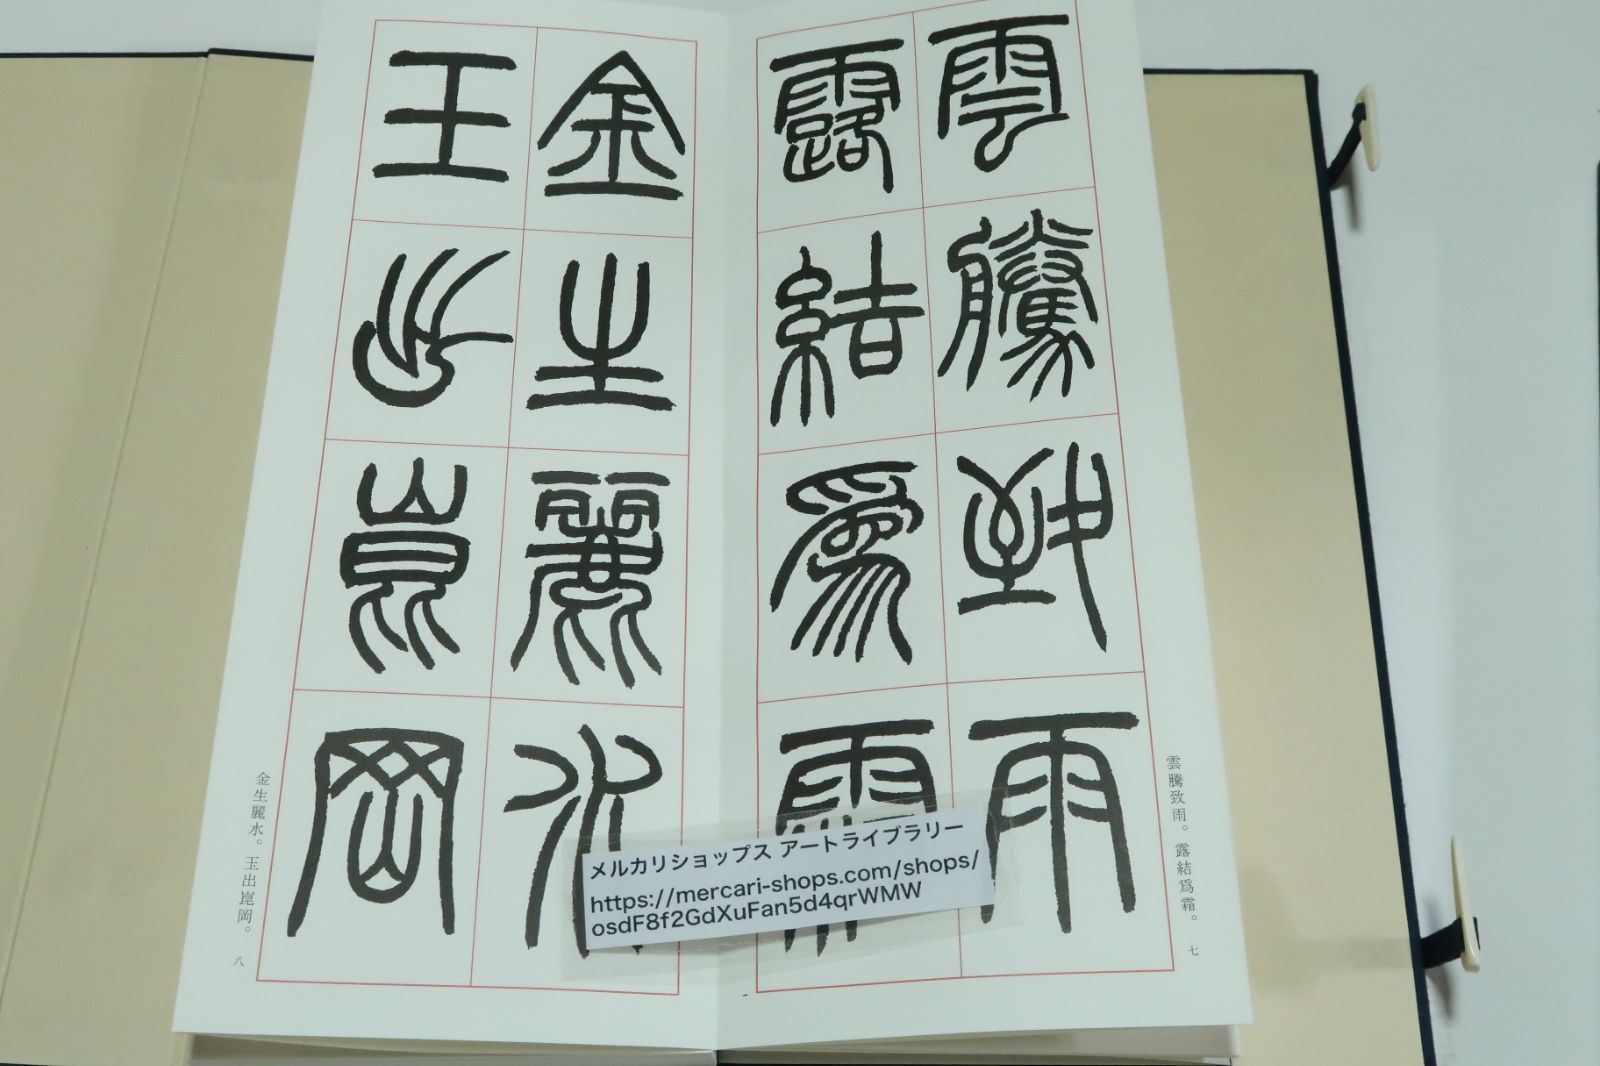 雲騰致雨
露結爲霜
雲騰致雨。露結爲霜。
七
金生麗水
王出崑岡
金生麗水。玉出崑岡。
八
メルカリショップス アートライブラリー
https://mercari-shops.com/shops/
osdF8f2GdXuFan5d4qrWMW